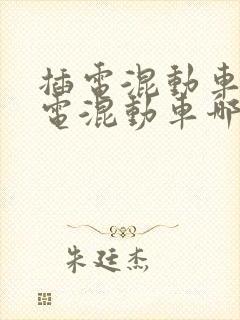 插電混動車
電混動車哪
朱廷杰